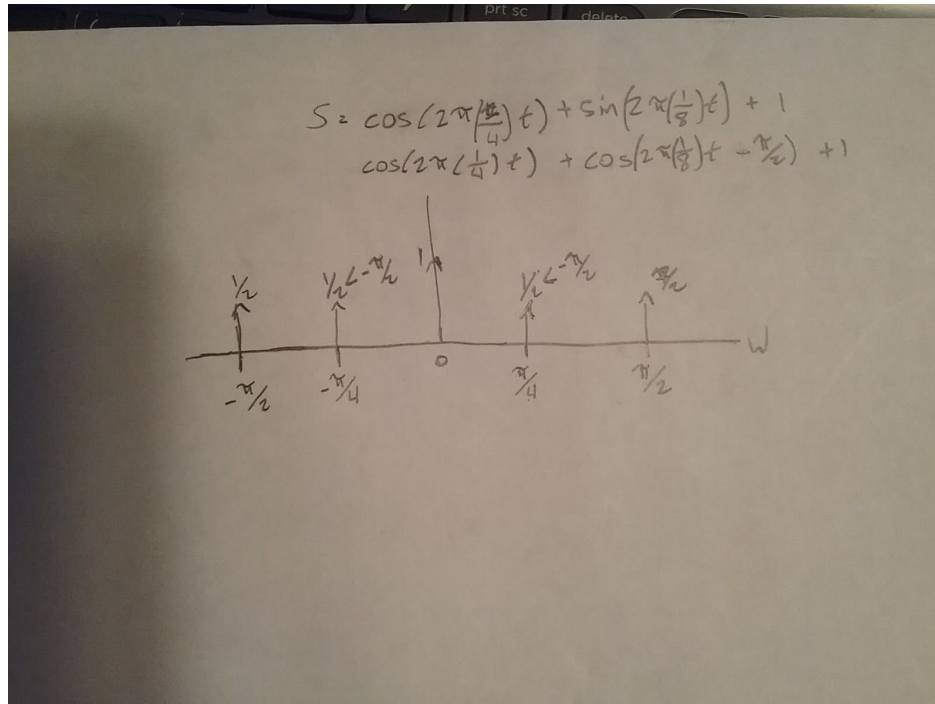 prt sc
delete
S = cos(2π(1/4)t) + sin(2π(1/8)t) + 1
cos(2π(1/4)t) + cos(2π(1/8)t - π/2) + 1
1/2 1/2<-π/2 1 1/2<-π/2 π/2
0 W
-π/2 -π/4 π/4 π/2